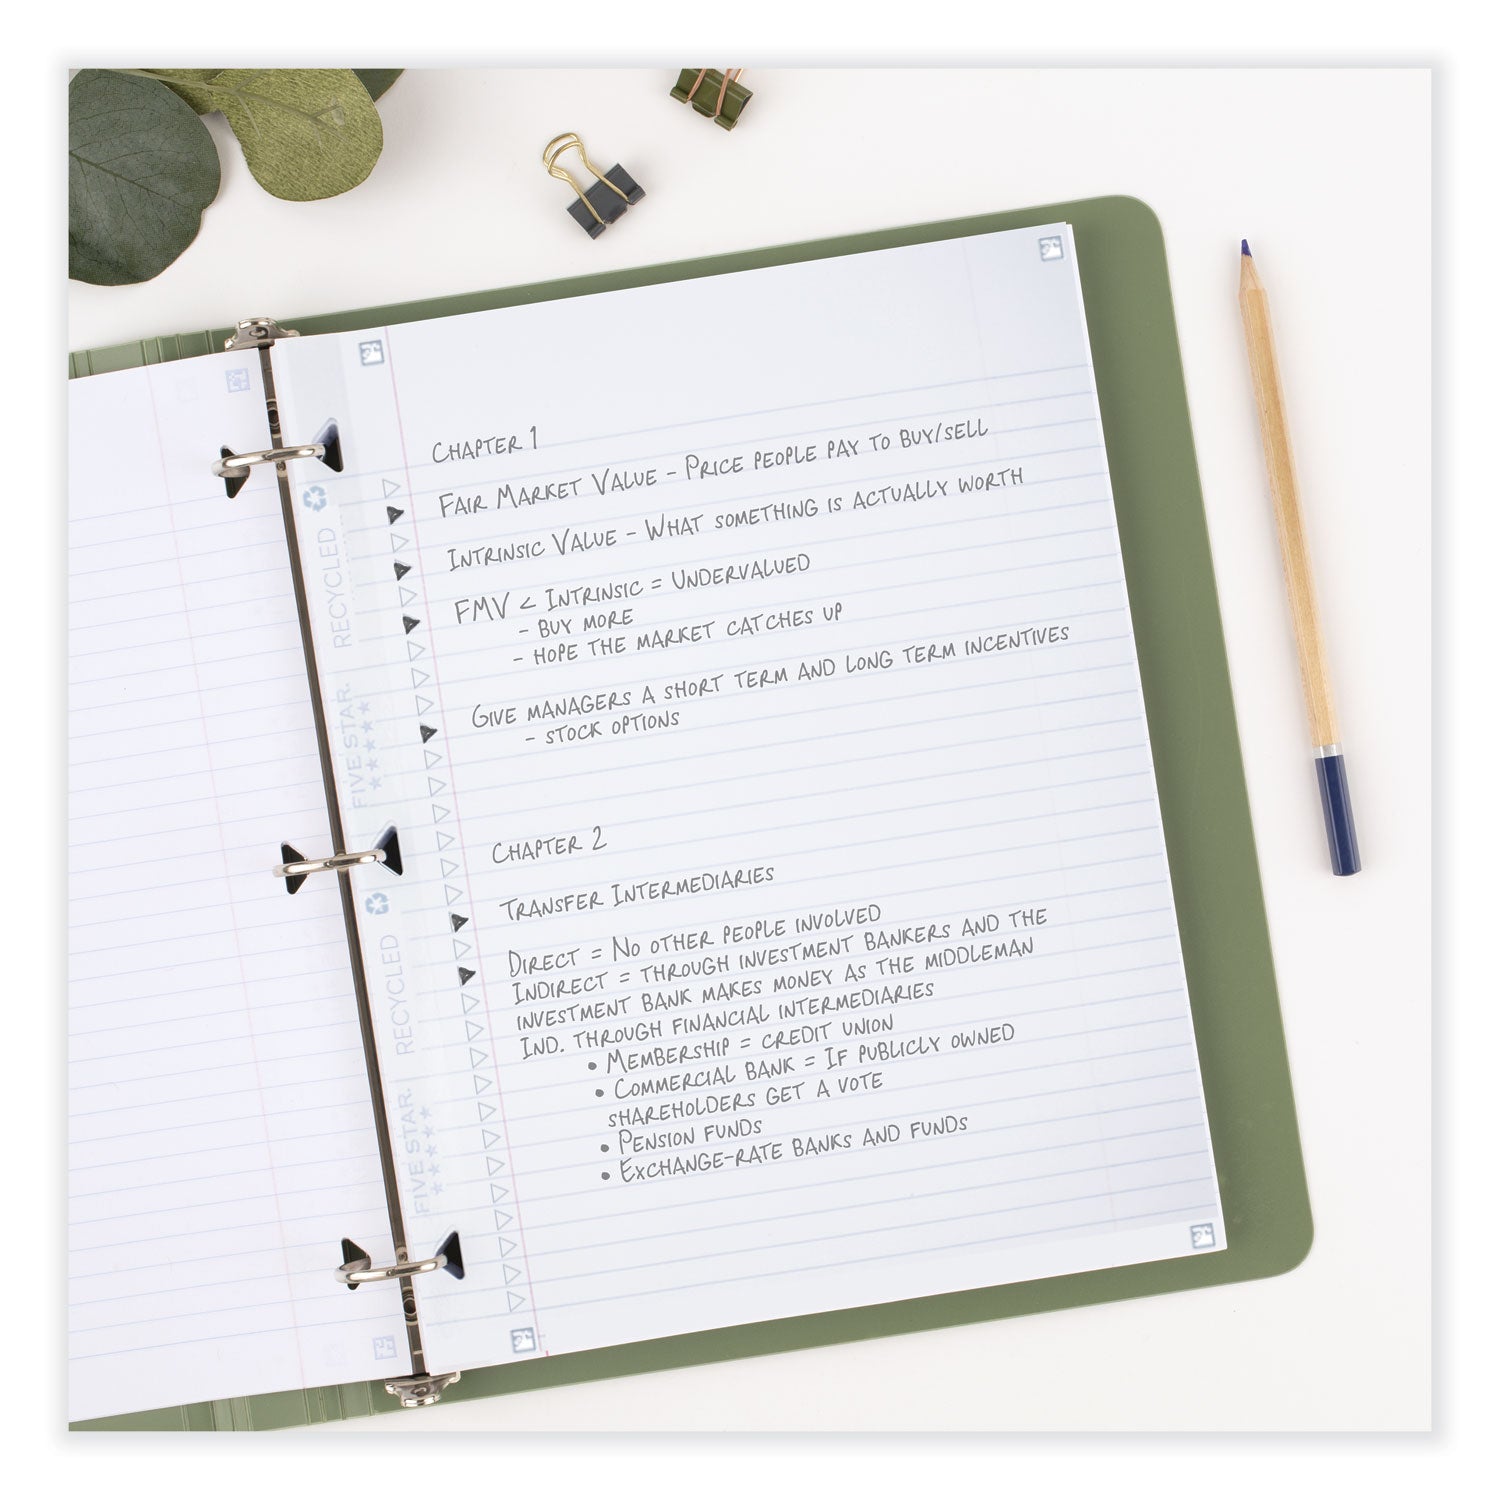 CHAPTER 1
FAIR MARKET VALUE - PRICE PEOPLE PAY TO BUY/SELL
INTRINSIC VALUE - WHAT SOMETHING IS ACTUALLY WORTH
FMV < INTRINSIC = UNDERVALUED
- BUY MORE
- HOPE THE MARKET CATCHES UP
GIVE MANAGERS A SHORT TERM AND LONG TERM INCENTIVES
- STOCK OPTIONS
CHAPTER 2
TRANSFER INTERMEDIARIES
DIRECT = NO OTHER PEOPLE INVOLVED
INDIRECT = THROUGH INVESTMENT BANKERS AND THE
INVESTMENT BANK MAKES MONEY AS THE MIDDLEMAN
IND. THROUGH FINANCIAL INTERMEDIARIES
• MEMBERSHIP = CREDIT UNION
• COMMERCIAL BANK = IF PUBLICLY OWNED
SHAREHOLDERS GET A VOTE
• PENSION FUNDS
• EXCHANGE-RATE BANKS AND FUNDS
FIVE STAR. RECYCLED
FIVE STAR. RECYCLED